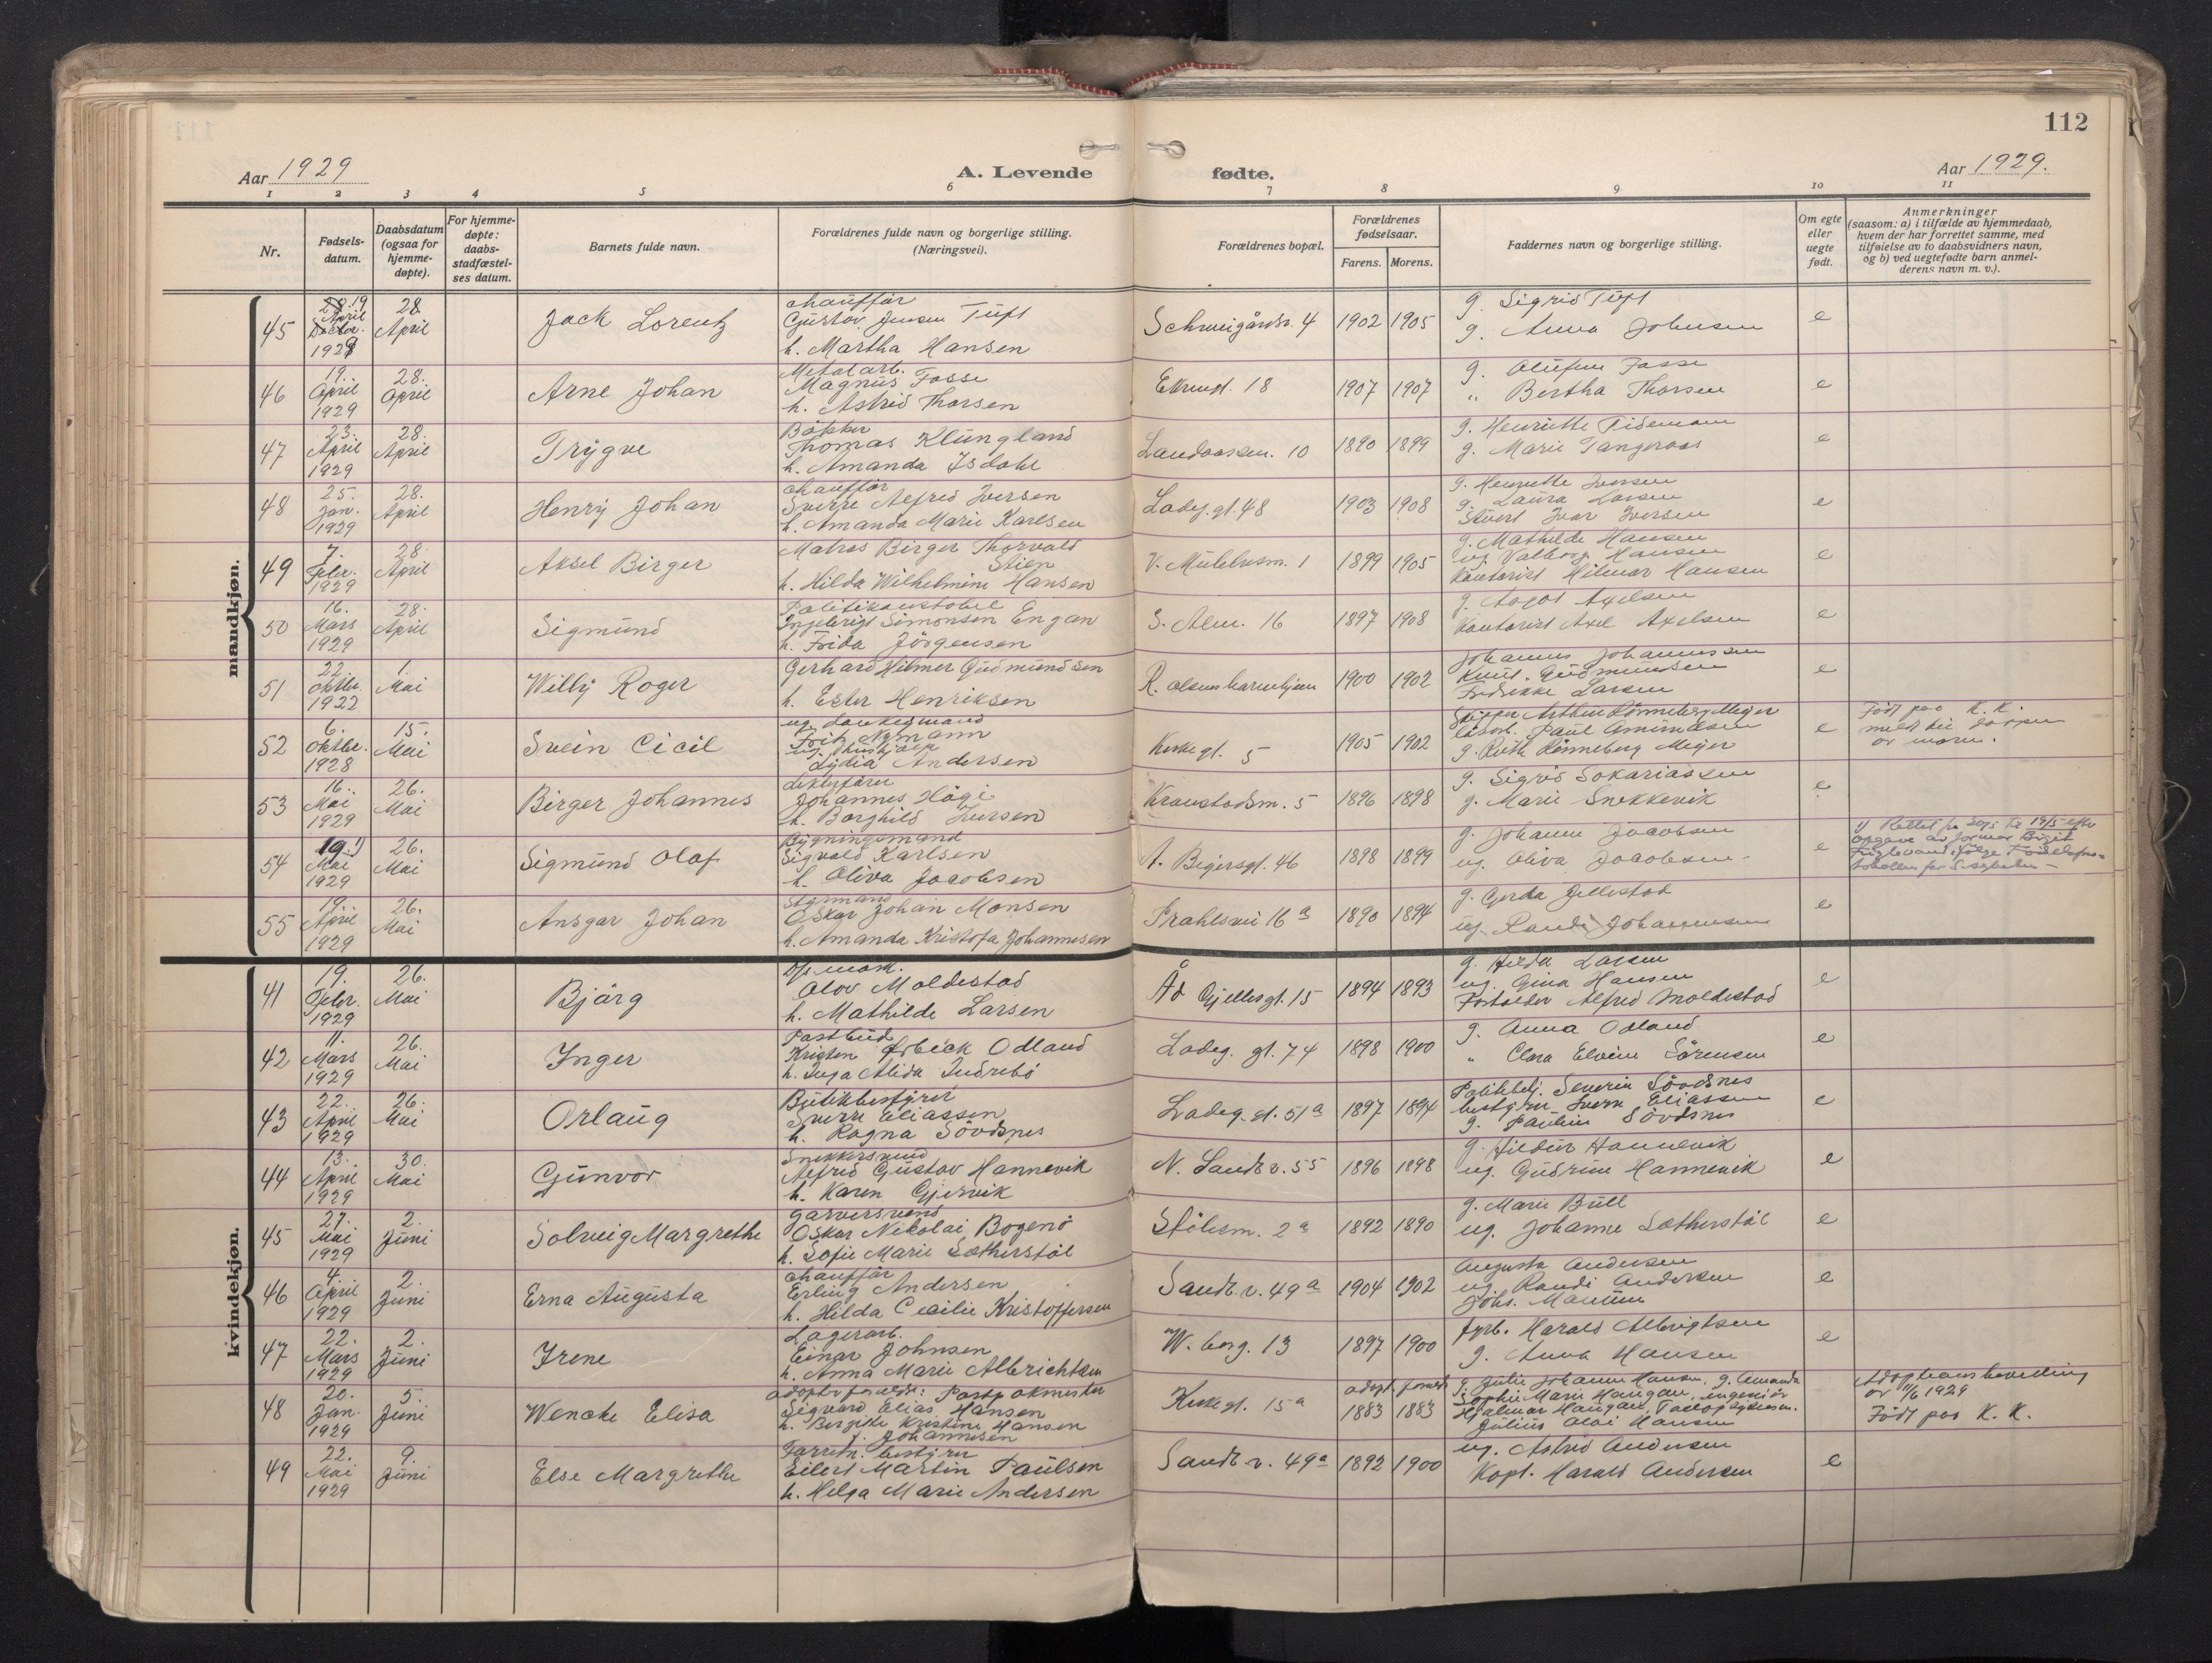 112
Aar 1929
A. Levende fødte.
Aar 1929.
1 2 3 4 5 6 7 8 9 10 11
Nr.
Fødsels-
datum.
Daabsdatum
(ogsaa for
hjemme-
døpte).
For hjemme-
døpte:
daabs-
stadfæstel-
ses datum.
Barnets fulde navn.
Forældrenes fulde navn og borgerlige stilling.
(Næringsvei).
Forældrenes bopæl.
Forældrenes
fødselsaar.
Farens. Morens.
Faddernes navn og borgerlige stilling.
Om egte
eller
uegte
født.
Anmerkninger
(saasom: a) i tilfælde av hjemmedaab,
hvem der har forrettet samme, med
tilføielse av to daabsvidners navn,
og b) ved uegtefødte barn anmel-
derens navn m. v.).
mandkjøn.
45 19 April 1929 28 April Jack Lorentz
chauffør
Gustav Jensen Tuft
h. Martha Hansen
Schweigårdsv. 4 1902 1905
g. Sigrid Tuft
g. Anna Johnsen
e
46 19. April 1929 28. April Arne Johan
Metalarb.
Magnus Fosse
h. Astrid Thorsen
18 1907 1907
g. Fosse
" Bertha Thorsen
e
47 23. April 1929 28. April Trygve
Bøkker
Thomas Klungland
h. Amanda Isdahl
10 1890 1899
g. Henriette Tidemann
g. Marie Tangeraas
e
48 25. Jan. 1929 28. April Henry Johan
chauffør
Sverre Alfred Iversen
h. Amanda Marie Karlsen
Ladeg. gt. 48 1903 1908
g. Henriette Iversen
g. Laura Larsen
Stuert Ivar Iversen
e
49 7. Febr. 1929 28. April Aksel Birger
Matros Birger Thorvald
Stien
h. Hilda Wilhelmine Hansen
1 1899 1905
g. Mathilde Hansen
ug. Valborg Hansen
Kontorist Hilmar Hansen
e
50 16. Mars 1929 28. April Sigmund
Politikonstabel
Ingebrigt Simonsen Engan
h. Frida Jørgensen
S. Alm. 16 1897 1908
g. Aagot Axelsen
Kontorist Axel Axelsen
e
51 22. oktbr. 1922 1. Mai Willy Roger
Gerhard Hilmer Gudmundsen
h. Ester Henriksen
R. olsens barnehjem 1900 1902
Johanne Johannessen
Knut Gudmundsen
Fredrikke Larsen
e
52 6. oktbr. 1928 15. Mai Svein Cicil
Fritz Nymann
Lydia Andersen
Kirkegt. 5 1905 1902
Skipper Arthur Rønneberg Meyer
Paul Amundsen
g. Ruth Rønneberg Meyer
e
Født paa K. K.
meldt til
av moren.
53 16. Mai 1929 26. Mai Birger Johannes
Johannes Høgi
h. Borghild Iversen
Kronstadsm. 5 1896 1898
g. Sigrid Sakariassen
g. Marie Snekkevik
e
54 19. 1) Mai 1929 26. Mai Sigmund Olaf
Bygningsmand
Sigvald Karlsen
h. Oliva Jacobsen
46 1898 1899
g. Johanne Jacobsen
ug. Oliva Jacobsen
e
1) Rettet fra 20/5 til 19/5 efter
opgave av jormor
55 19. April 1929 26. Mai Ansgar Johan
Styrmand
Oskar Johan Monsen
h. Amanda Kristofa Johannesen
Prahlsvei 16 a 1890 1894
g. Gerda Jellestad
ug. Randi Johannesen
e
kvindekjøn.
41 19. Febr. 1929 26. Mai Bjørg
Olov Moldestad
h. Mathilde Larsen
Ad Gjellesgt. 15 1894 1893
g. Hilda Larsen
ug. Gina Hansen
Forvalder Alfred Moldestad
e
42 11. Mars 1929 26. Mai Inger
Postbud
Kristen Ørbeck Odland
h. Inga Alida Indrebø
Ladeg. gt. 74 1898 1900
g. Anna Odland
" Clara Elvine Sørensen
e
43 22. April 1929 26. Mai Orlaug
Butikbestyrer
Sverre Eliassen
h. Ragna Søvdsnes
Ladeg. gt. 51 a 1897 1894
Politibetj. Severin Søvdsnes
bestyrer Sverre Eliassen
g. Pauline Søvdsnes
e
44 13. April 1929 30. Mai Gunvor
Snekkersvend
Alfred Gustav Hannevik
h. Karen Gjervik
N. Sandv. v. 55 1896 1898
g. Hildur Hannevik
ug. Gudrun Hannevik
e
45 27. Mai 1929 2. Juni Solveig Margrethe
Garversvend
Oskar Nikolai Bogenø
h. Sofie Marie Sætherstøl
Stølesm. 2 a 1892 1890
g. Marie Bull
ug. Johanne Sætherstøl
e
46 4. April 1929 2. Juni Erna Augusta
chauffør
Erling Andersen
h. Hilda Cecilie Kristoffersen
Sandv. v. 49 a 1904 1902
Augusta Andersen
ug. Randi Andersen
Johs.
e
47 22. Mars 1929 2. Juni Irene
Lagerarb.
Einar Johnsen
h. Anna Marie Albrichtsen
W. berg. 13 1897 1900
fyrb. Harald Albrigtsen
g. Anna Hansen
e
48 20. Jan. 1929 5. Juni Wencke Elisa
adoptivforældre: Postpakmester
Sigvard Elias Hansen
h. Bergitte Kristine Hansen
f. Johannesen
Kirkegt. 15 a
adopt. foræld.
1883 1883
g. Julie Johanne Hansen, g. Amanda
Sophie Marie Haugan, ingeniør
Hjalmar Haugan,
Julius Olai Hansen
Adoptionsbevilling
av 1/6 1929
Født paa K. K.
49 22. Mai 1929 9. Juni Else Margrethe
Forretn. bestyrer
Eilert Martin Paulsen
h. Helga Marie Andersen
Sandv. v. 49 a 1892 1900
ug. Astrid Andersen
Kapt. Harald Andersen
e